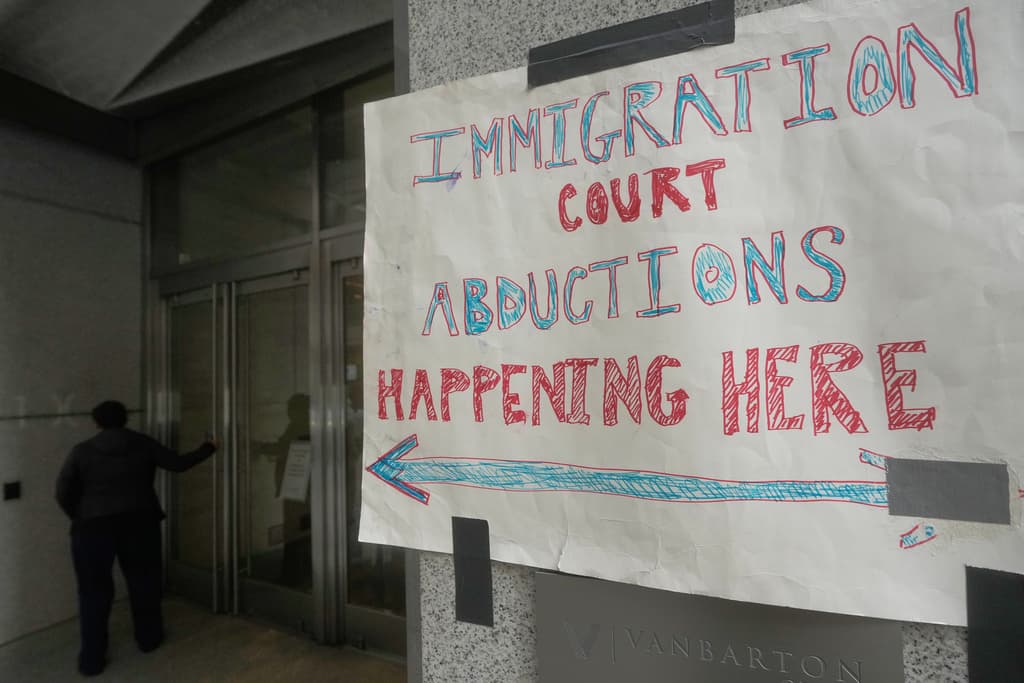 IMMIGRATION
COURT
ABDUCTIONS
HAPPENING HERE
VANBARTON